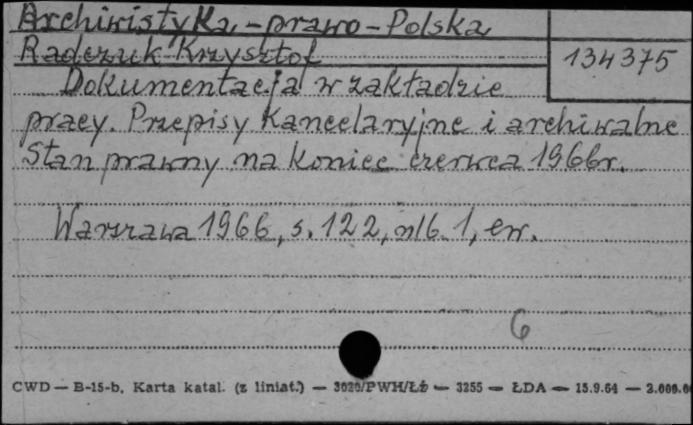 Archiwistyka - prawo - Polska
Radczuk Krzysztof
134375
Dokumentacja w zakładzie
pracy. Przepisy kancelaryjne i archiwalne
Stan prawny na koniec czerwca 1966r.
Warszawa 1966, s. 122, nlb. 1, err.
6
CWD — B-15-b, Karta katal. (z liniat.) — 3020/PWH/Łż — 3255 — ŁDA — 15.9.64 — 2.000.0